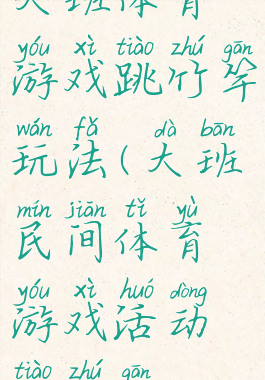 大班体育
yóu xì tiào zhú gān
游戏跳竹竿
wán fǎ dà bān
玩法(大班
mín jiān tǐ yù
民间体育
yóu xì huó dòng
游戏活动
tiào zhú gān